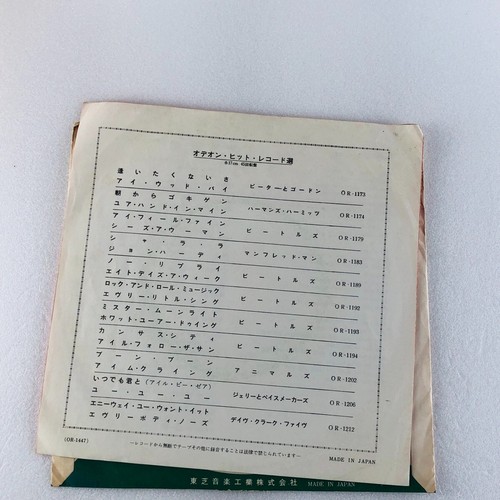 オデオン・ヒット・レコード選
逢いたくないさ
アイ・ウッド・バイ ピーターとゴードン OR-1173
朝からゴキゲン
ユア・ハンド・イン・マイン ハーマンズ・ハーミッツ OR-1174
アイ・フィール・ファイン
シーズ・ア・ウーマン ビートルズ OR-1179
シャ・ラ・ラ
ジョン・ハーディ マンフレッド・マン OR-1183
ノー・リプライ
エイト・デイズ・ア・ウィーク ビートルズ OR-1189
ロック・アンド・ロール・ミュージック
エヴリー・リトル・シング ビートルズ OR-1192
ミスター・ムーンライト
ホワット・ユーアー・ドゥイング ビートルズ OR-1193
カンサス・シティ
アイル・フォロー・ザ・サン ビートルズ OR-1194
ブーン・ブーン
アイム・クライング アニマルズ OR-1202
いつでも君と(アイル・ビー・ゼア)
ユー・ユー・ユー ジェリーとペイスメーカーズ OR-1206
エニーウェイ・ユー・ウォント・イット
エヴリーボディ・ノーズ デイヴ・クラーク・ファイヴ OR-1212
(OR-1447) ―レコードから無断でテープその他に録音することは法律で禁じられています― MADE IN JAPAN
東芝音楽工業株式会社 MADE IN JAPAN